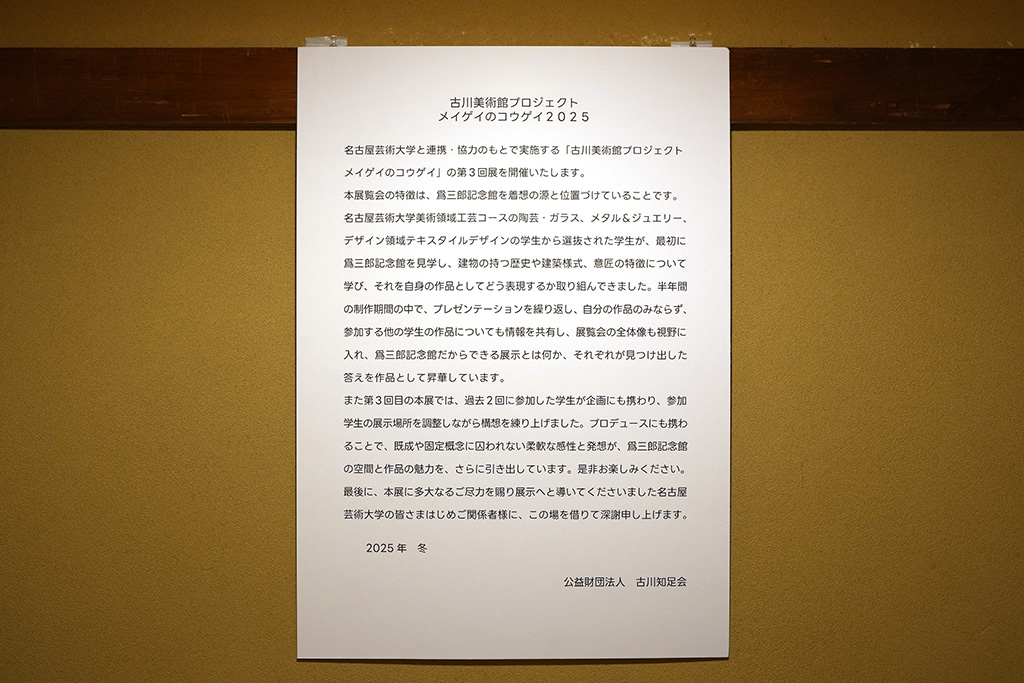 古川美術館プロジェクト
メイゲイのコウゲイ２０２５
名古屋芸術大学と連携・協力のもとで実施する「古川美術館プロジェクト
メイゲイのコウゲイ」の第３回展を開催いたします。
本展覧会の特徴は、爲三郎記念館を着想の源と位置づけていることです。
名古屋芸術大学美術領域工芸コースの陶芸・ガラス、メタル＆ジュエリー、
デザイン領域テキスタイルデザインの学生から選抜された学生が、最初に
爲三郎記念館を見学し、建物の持つ歴史や建築様式、意匠の特徴について
学び、それを自身の作品としてどう表現するか取り組んできました。半年間
の制作期間の中で、プレゼンテーションを繰り返し、自分の作品のみならず、
参加する他の学生の作品についても情報を共有し、展覧会の全体像も視野に
入れ、爲三郎記念館だからできる展示とは何か、それぞれが見つけ出した
答えを作品として昇華しています。
また第３回目の本展では、過去２回に参加した学生が企画にも携わり、参加
学生の展示場所を調整しながら構想を練り上げました。プロデュースにも携わ
ることで、既成や固定概念に囚われない柔軟な感性と発想が、爲三郎記念館
の空間と作品の魅力を、さらに引き出しています。是非お楽しみください。
最後に、本展に多大なるご尽力を賜り展示へと導いてくださいました名古屋
芸術大学の皆さまはじめご関係者様に、この場を借りて深謝申し上げます。
2025年　冬
公益財団法人　古川知足会